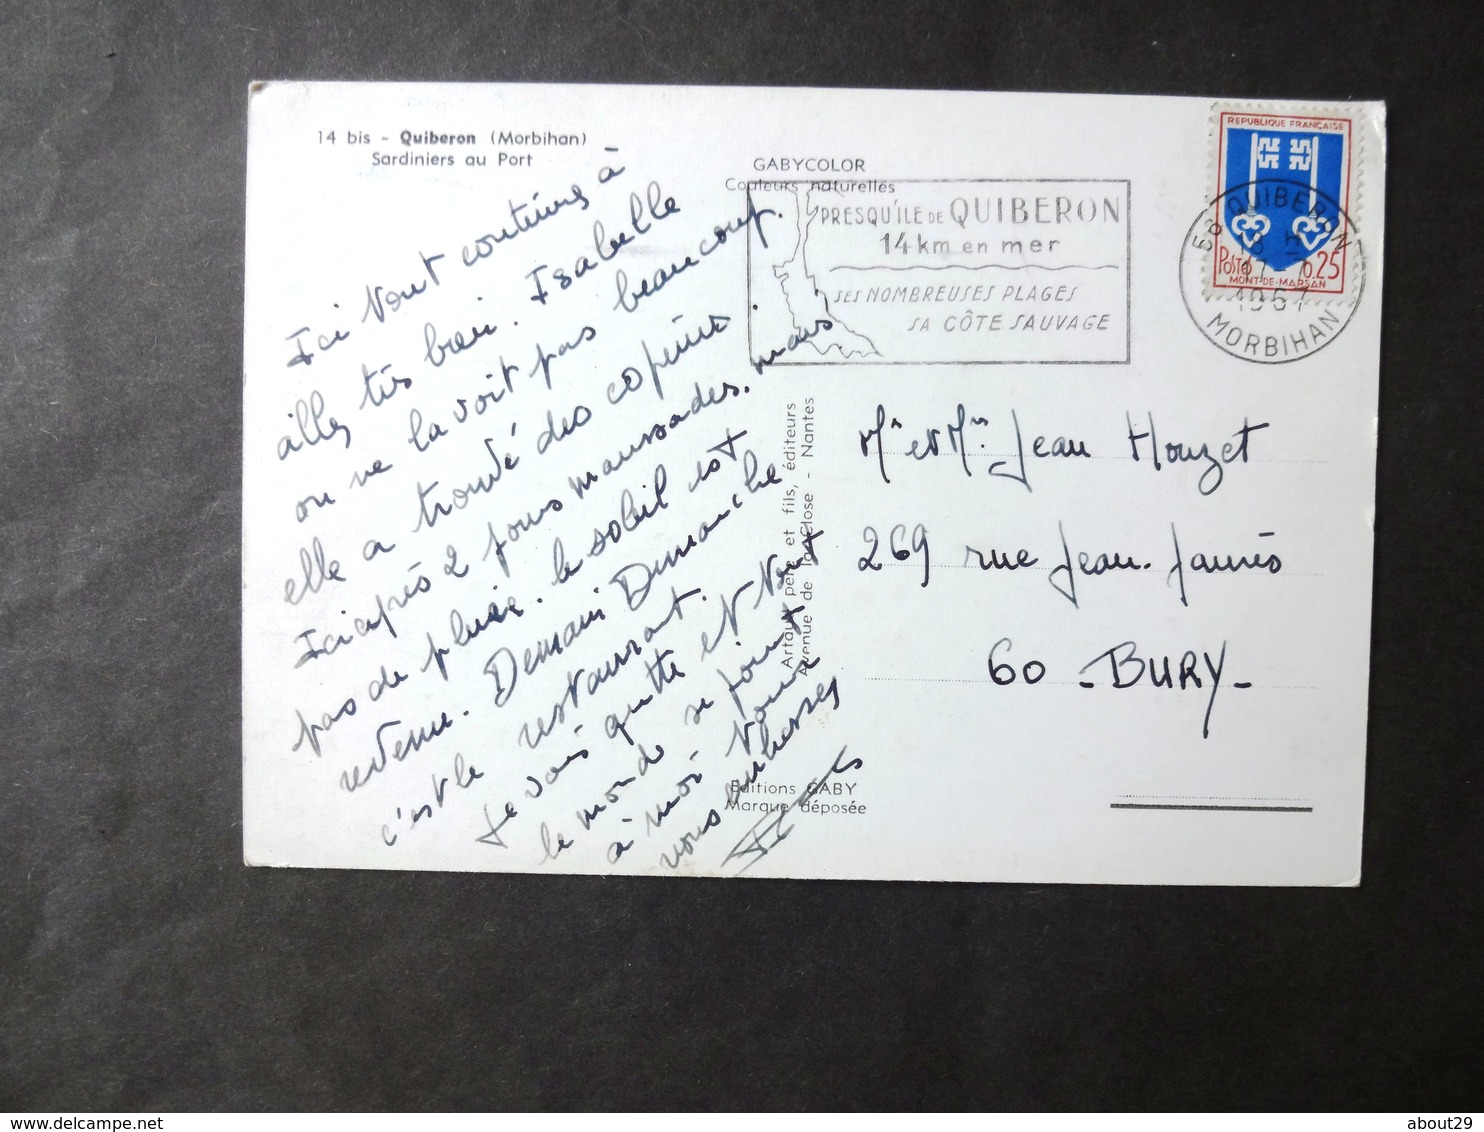 14 bis - Quiberon (Morbihan)
Sardiniers au Port
GABYCOLOR
Couleurs naturelles
PRESQU'ILE DE QUIBERON
14 km en mer
SES NOMBREUSES PLAGES
SA CÔTE SAUVAGE
REPUBLIQUE FRANÇAISE
POSTES 0.25
MONT-DE-MARSAN
56 QUIBERON
MORBIHAN
Ici tout continus à
aller très bien. Isabelle
on ne la voit pas beaucoup.
elle a trouvé des copains.
Ici après 2 jours maussades. mais
pas de pluie. le soleil est
revenu. Demain Dimanche
c'est le restaurant.
Je vais quitte et tout
le monde se joint
à moi pour
vous embrasser
Artaud père et fils, éditeurs
Avenue de la Close - Nantes
Editions GABY
Marque déposée
Mr et Mme Jean Houzet
269 rue Jean. Jaurès
60 - BURY -
about29